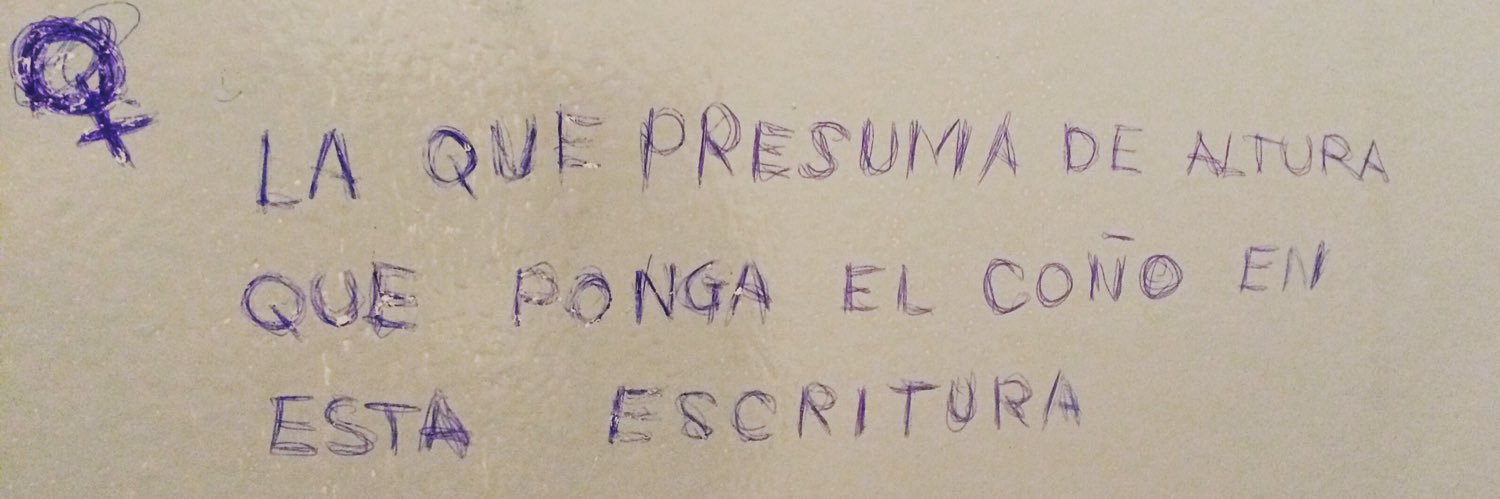 LA QUE PRESUMA DE ALTURA
QUE PONGA EL COÑO EN
ESTA ESCRITURA